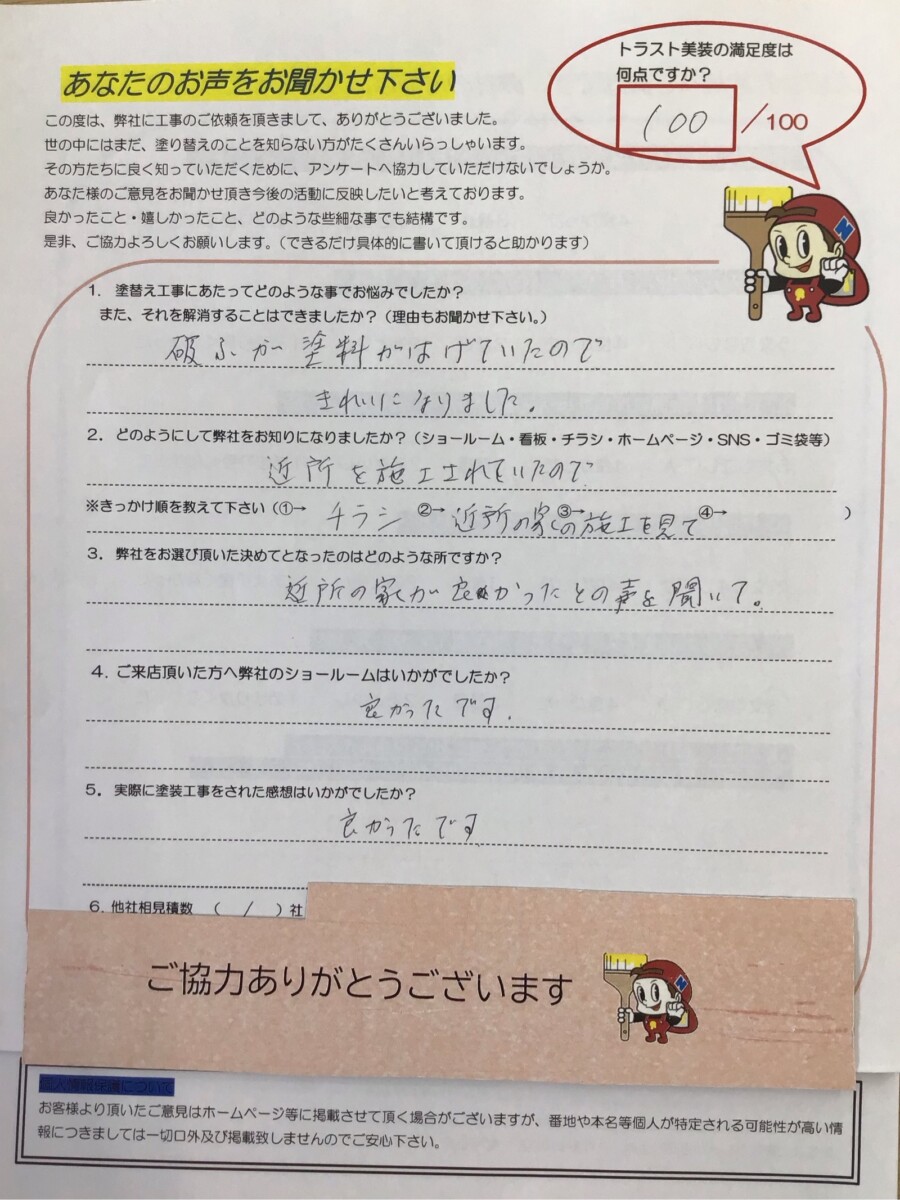 トラスト美装の満足度は
何点ですか？
100 /100
あなたのお声をお聞かせ下さい
この度は、弊社に工事のご依頼を頂きまして、ありがとうございました。
世の中にはまだ、塗り替えのことを知らない方がたくさんいらっしゃいます。
その方たちに良く知っていただくために、アンケートへ協力していただけないでしょうか。
あなた様のご意見をお聞かせ頂き今後の活動に反映したいと考えております。
良かったこと・嬉しかったこと、どのような些細な事でも結構です。
是非、ご協力よろしくお願いします。（できるだけ具体的に書いて頂けると助かります）
1. 塗替え工事にあたってどのような事でお悩みでしたか？
また、それを解消することはできましたか？（理由もお聞かせ下さい。）
破ふが塗料がはげていたので
きれいになりました。
2. どのようにして弊社をお知りになりましたか？（ショールーム・看板・チラシ・ホームページ・SNS・ゴミ袋等）
近所を施工されていたので
※きっかけ順を教えて下さい（①→ チラシ ②→ 近所の家の施工を見て ③→ ④→ ）
3. 弊社をお選び頂いた決めてとなったのはどのような所ですか？
近所の家が良かったとの声を聞いて。
4. ご来店頂いた方へ弊社のショールームはいかがでしたか？
良かったです.
5. 実際に塗装工事をされた感想はいかがでしたか？
良かったです
6. 他社相見積数 （ / ）社
ご協力ありがとうございます
個人情報保護について
お客様より頂いたご意見はホームページ等に掲載させて頂く場合がございますが、番地や本名等個人が特定される可能性が高い情
報につきましては一切口外及び掲載致しませんのでご安心下さい。